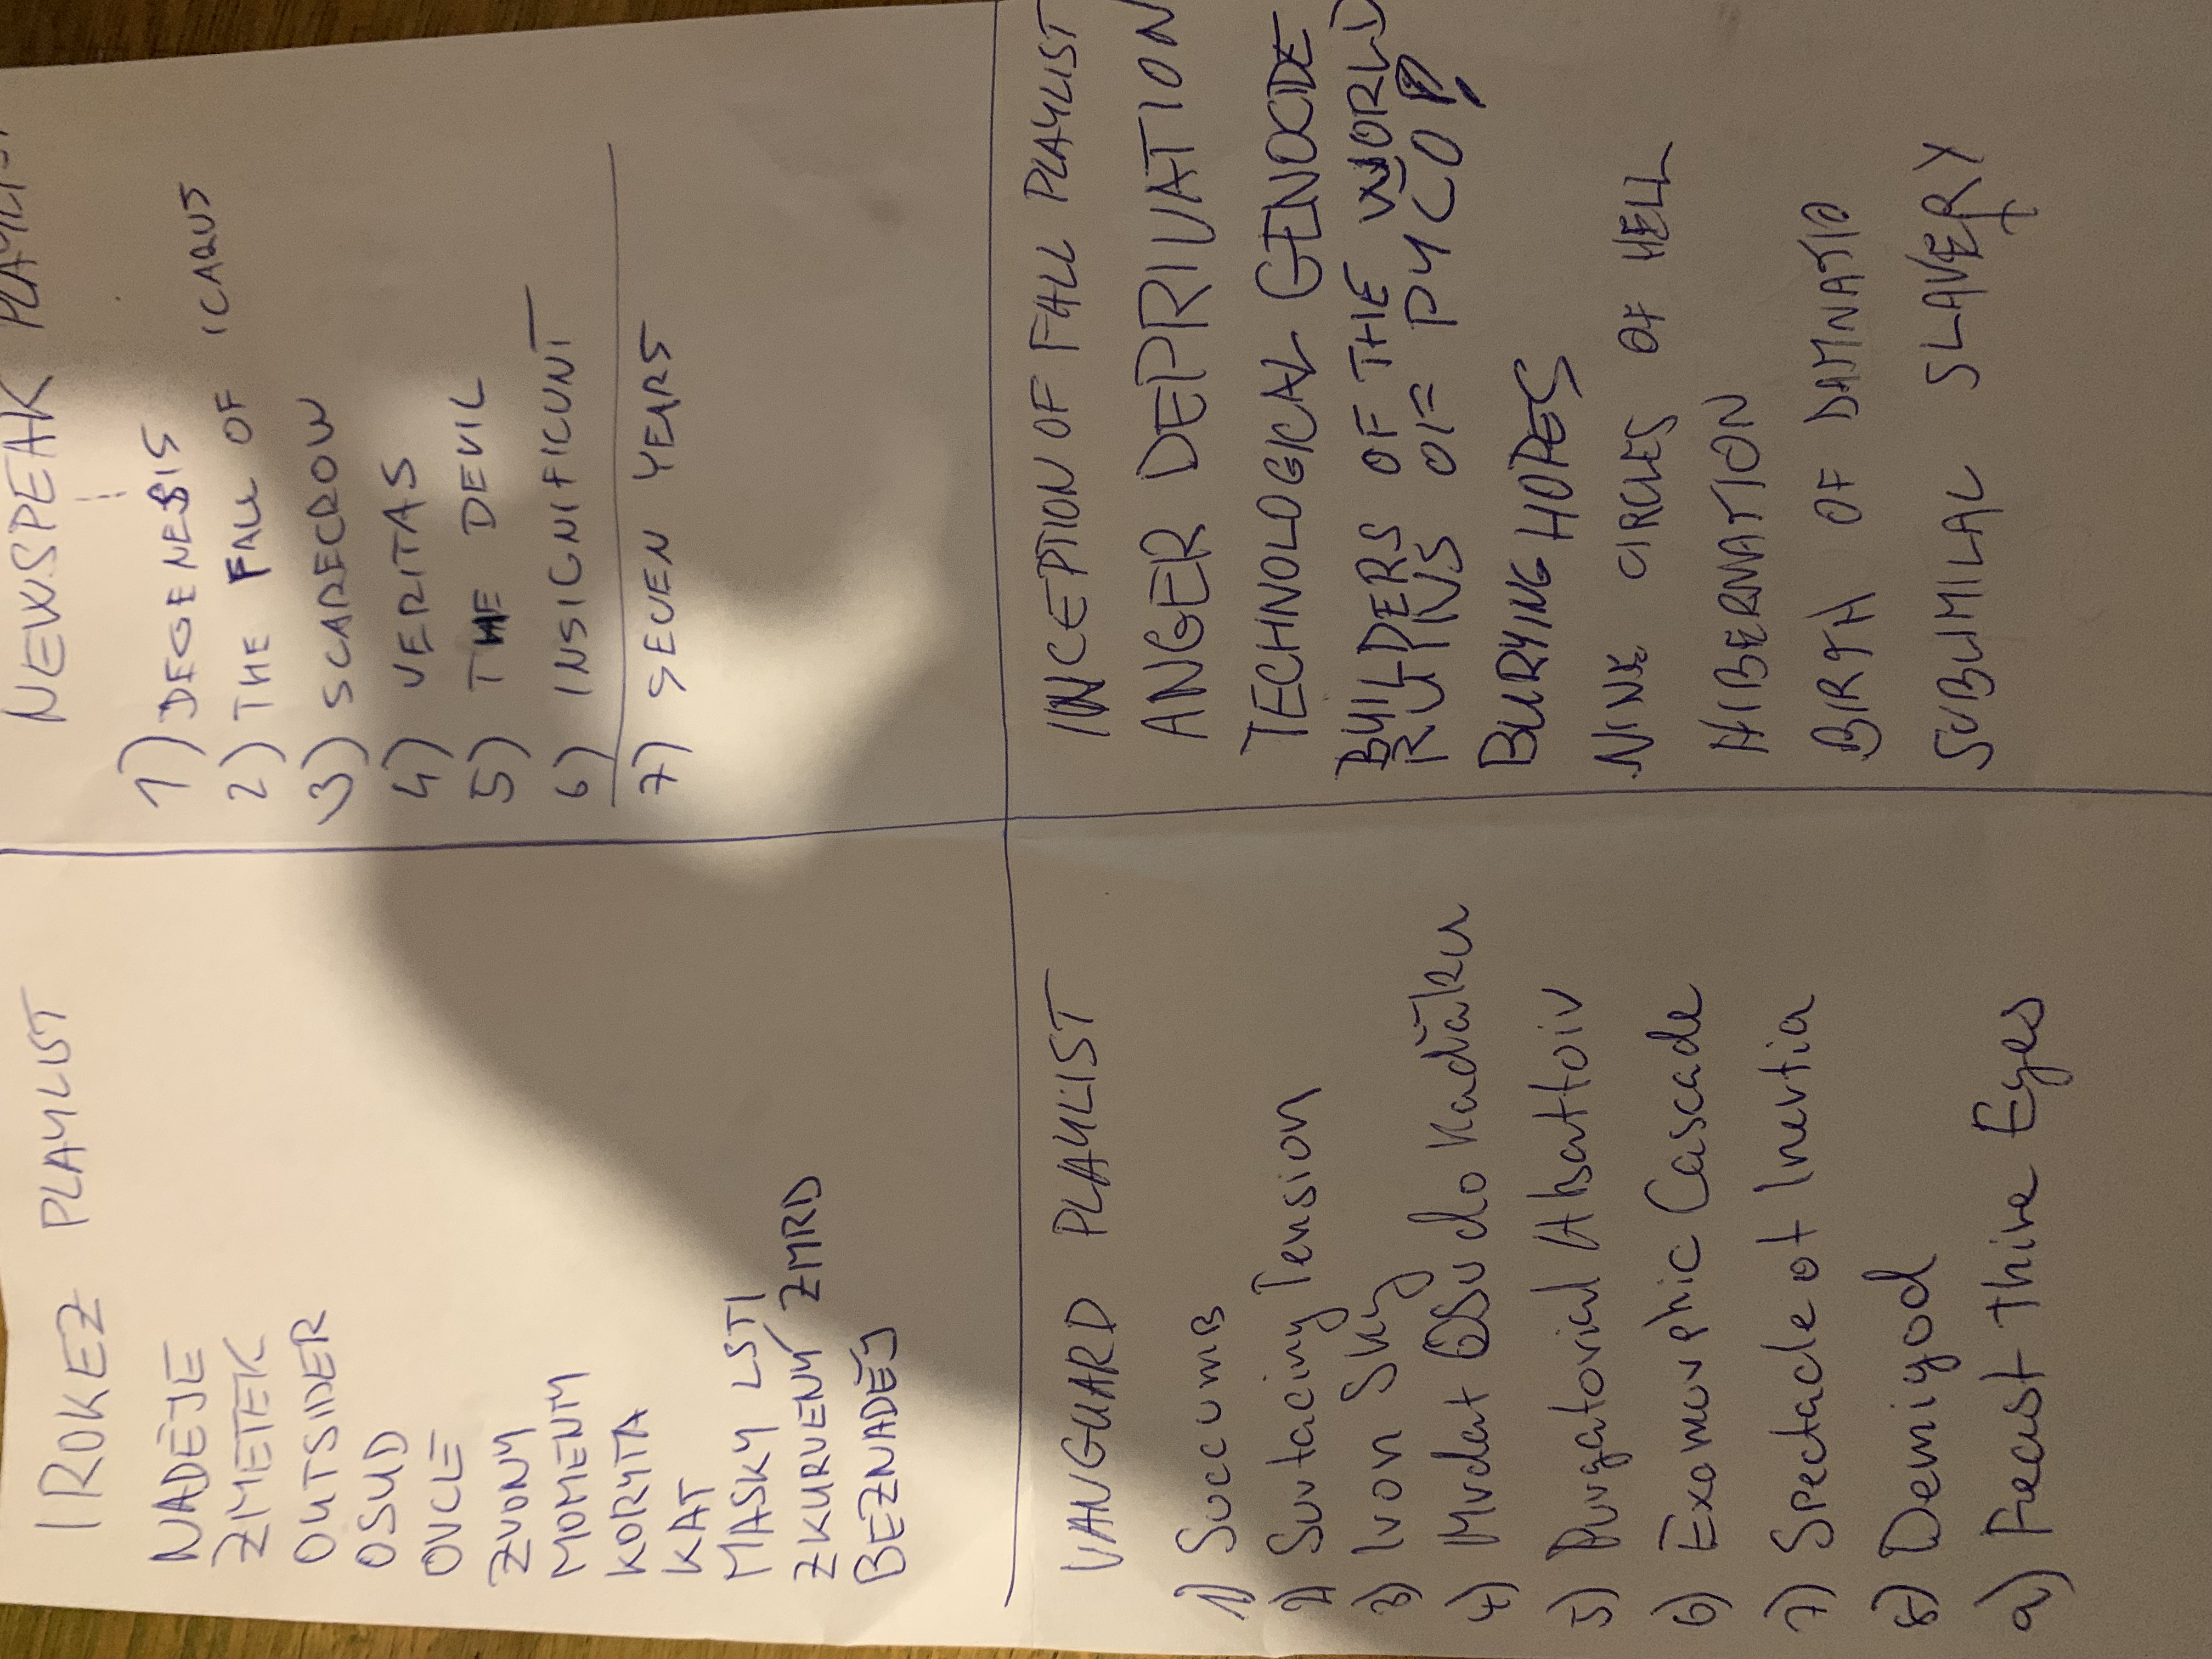 IROKEZ PLAYLIST
NADĚJE
ZMETEK
OUTSIDER
OSUD
OVCE
ZVONY
MOMENTY
KORYTA
KAT
MASKY LSTI
ZKURVENÝ ZMRD
BEZNADĚJ
NEWSPEAK PLAYLIST
1) DEGENESIS
2) THE FALL OF ICARUS
3) SCARECROW
4) VERITAS
5) THE DEVIL
6) INSIGNIFICUNT
7) SEVEN YEARS
VANGUARD PLAYLIST
1) Succumb
2) Surfacing Tension
3) Iron Sky
4) Mrdat do kaďáku
5) Purgatorial Abattoir
6) Exomorphic Cascade
7) Spectacle of Inertia
8) Demigod
9) Feast thine Eyes
INCEPTION OF FALL PLAYLIST
ANGER DEPRIVATION
TECHNOLOGICAL GENOCIDE
BUILDERS OF THE WORLD
RUINS OF PYCO!
BURYING HOPES
NINE CIRCLES OF HELL
HIBERNATION
BIRTH OF DAMNATIO
SUBUMILAL SLAVERY